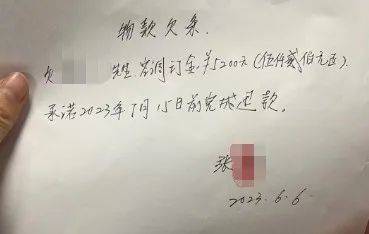 欠款欠条
欠 先生 岩洞订金￥5200元(伍仟贰佰元正).
承诺2023年7月15日前完成还款。
张
2023.6.6